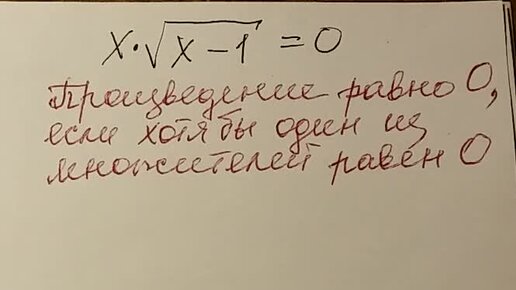 x·√x-1 = 0
Произведение равно 0,
если хотя бы один из
множителей равен 0